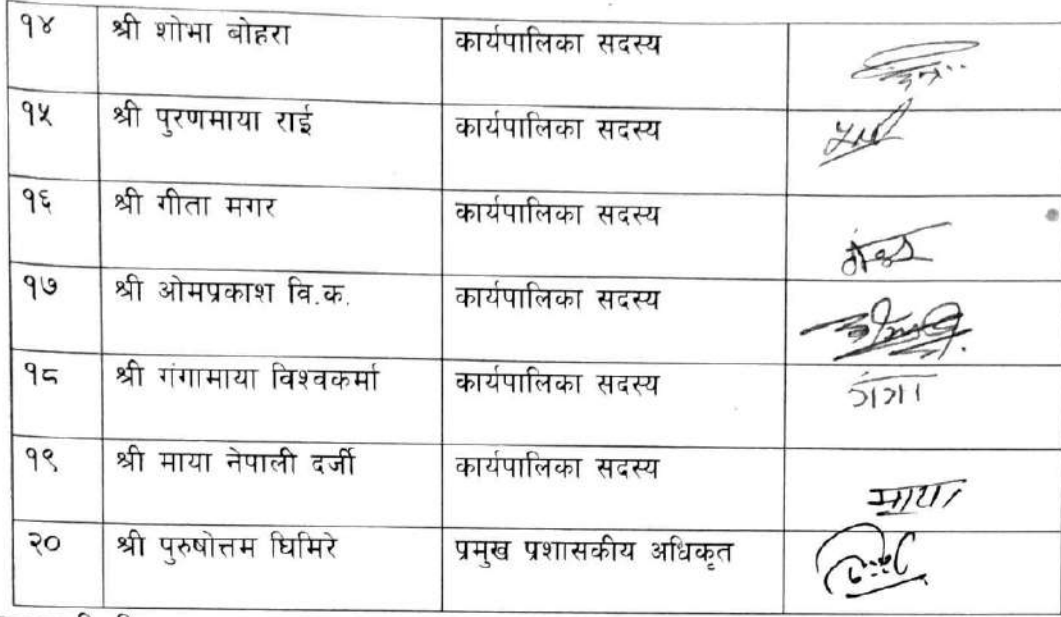 १४ श्री शोभा बोहरा कार्यपालिका सदस्य
१५ श्री पुरणमाया राई कार्यपालिका सदस्य
१६ श्री गीता मगर कार्यपालिका सदस्य
१७ श्री ओमप्रकाश वि.क. कार्यपालिका सदस्य
१८ श्री गंगामाया विश्वकर्मा कार्यपालिका सदस्य गंगा
१९ श्री माया नेपाली दर्जी कार्यपालिका सदस्य माया
२० श्री पुरुषोत्तम घिमिरे प्रमुख प्रशासकीय अधिकृत